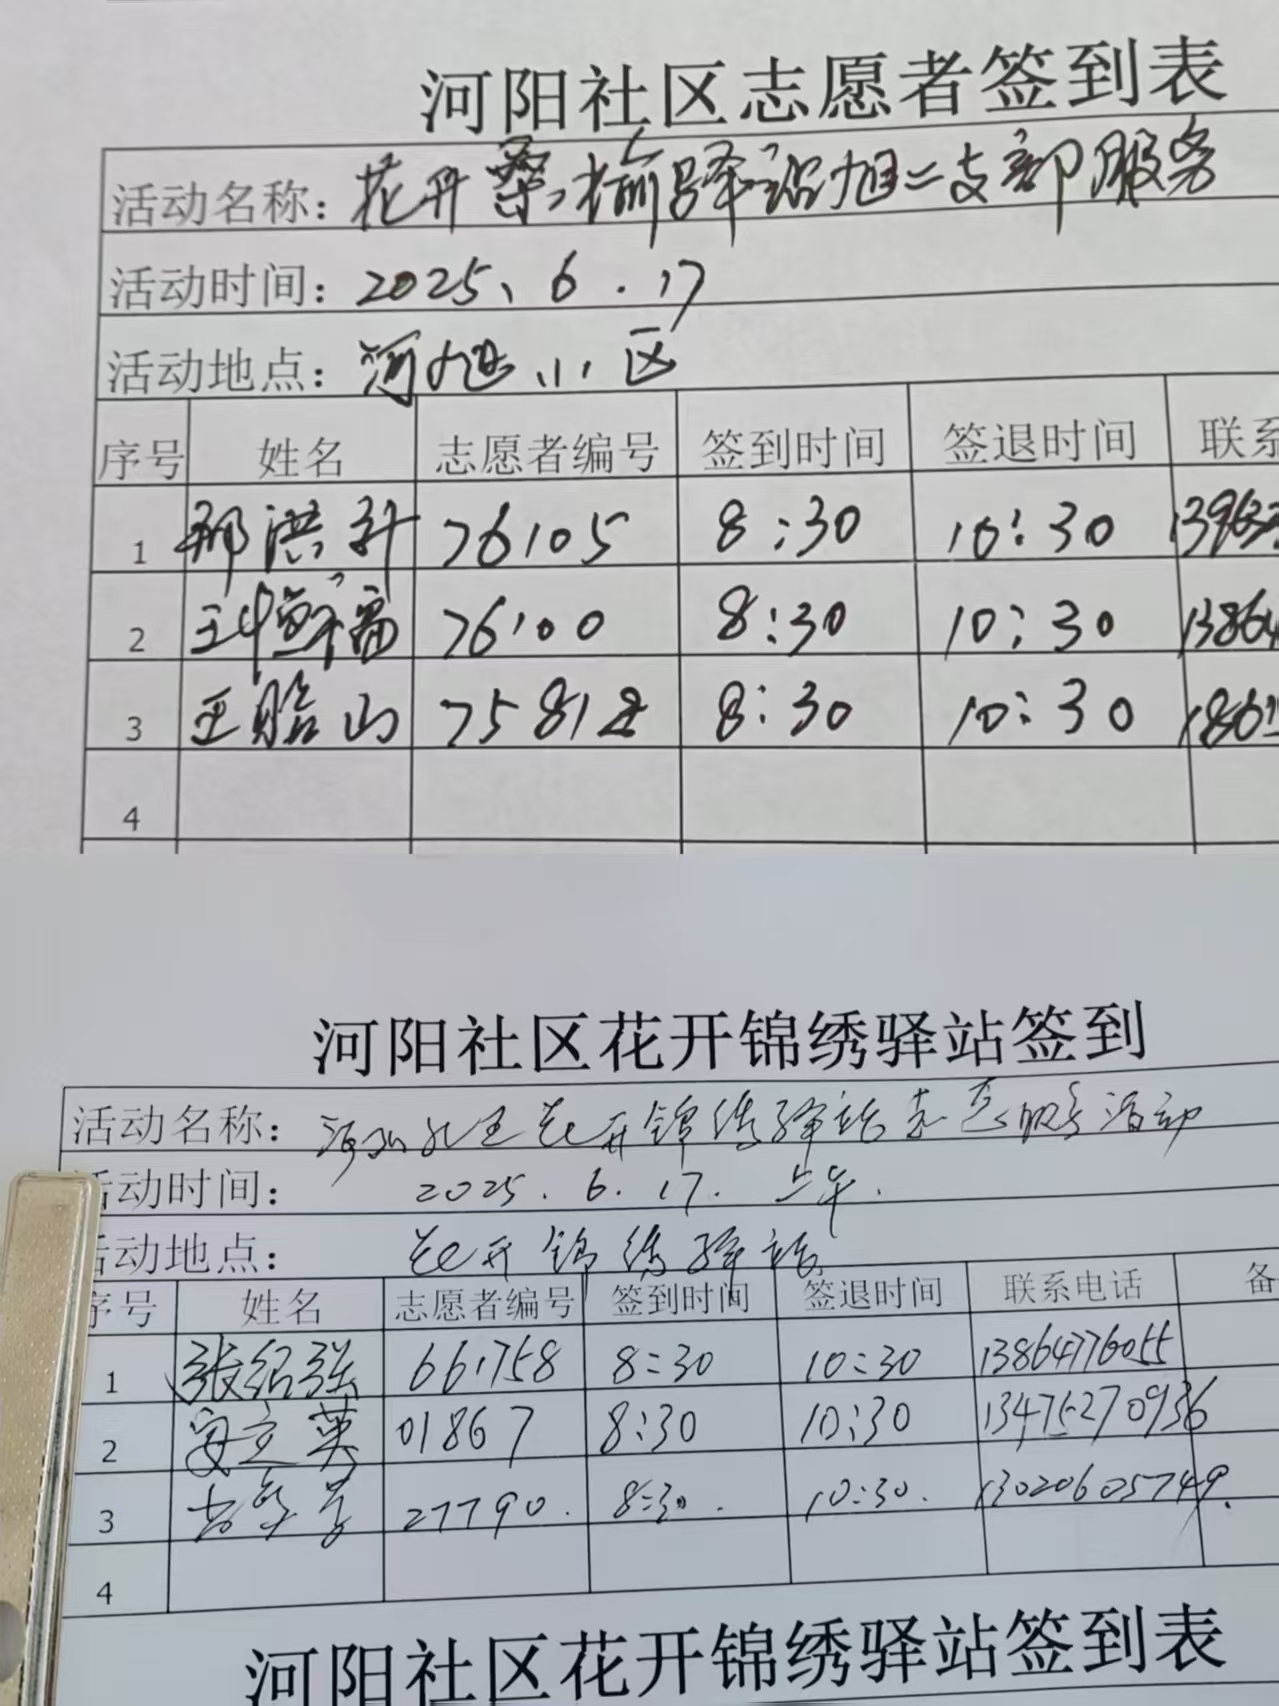 河阳社区志愿者签到表
活动名称：花开桑榆驿站旭二支部服务
活动时间：2025、6.17
活动地点：河旭小区
序号 姓名 志愿者编号 签到时间 签退时间 联系
1 邢洪升 76105 8:30 10:30
2 76100 8:30 10:30 13864
3 王贻山 75812 8:30 10:30
4
河阳社区花开锦绣驿站签到
活动名称：花开锦绣驿站志愿服务活动
活动时间：2025.6.17.上午.
活动地点：花开锦绣驿站
序号 姓名 志愿者编号 签到时间 签退时间 联系电话 备
1 张绍强 661758 8:30 10:30 13864776055
2 立英 01867 8:30 10:30 13475270936
3 27790. 8:30. 10:30. 13020605749.
4
河阳社区花开锦绣驿站签到表